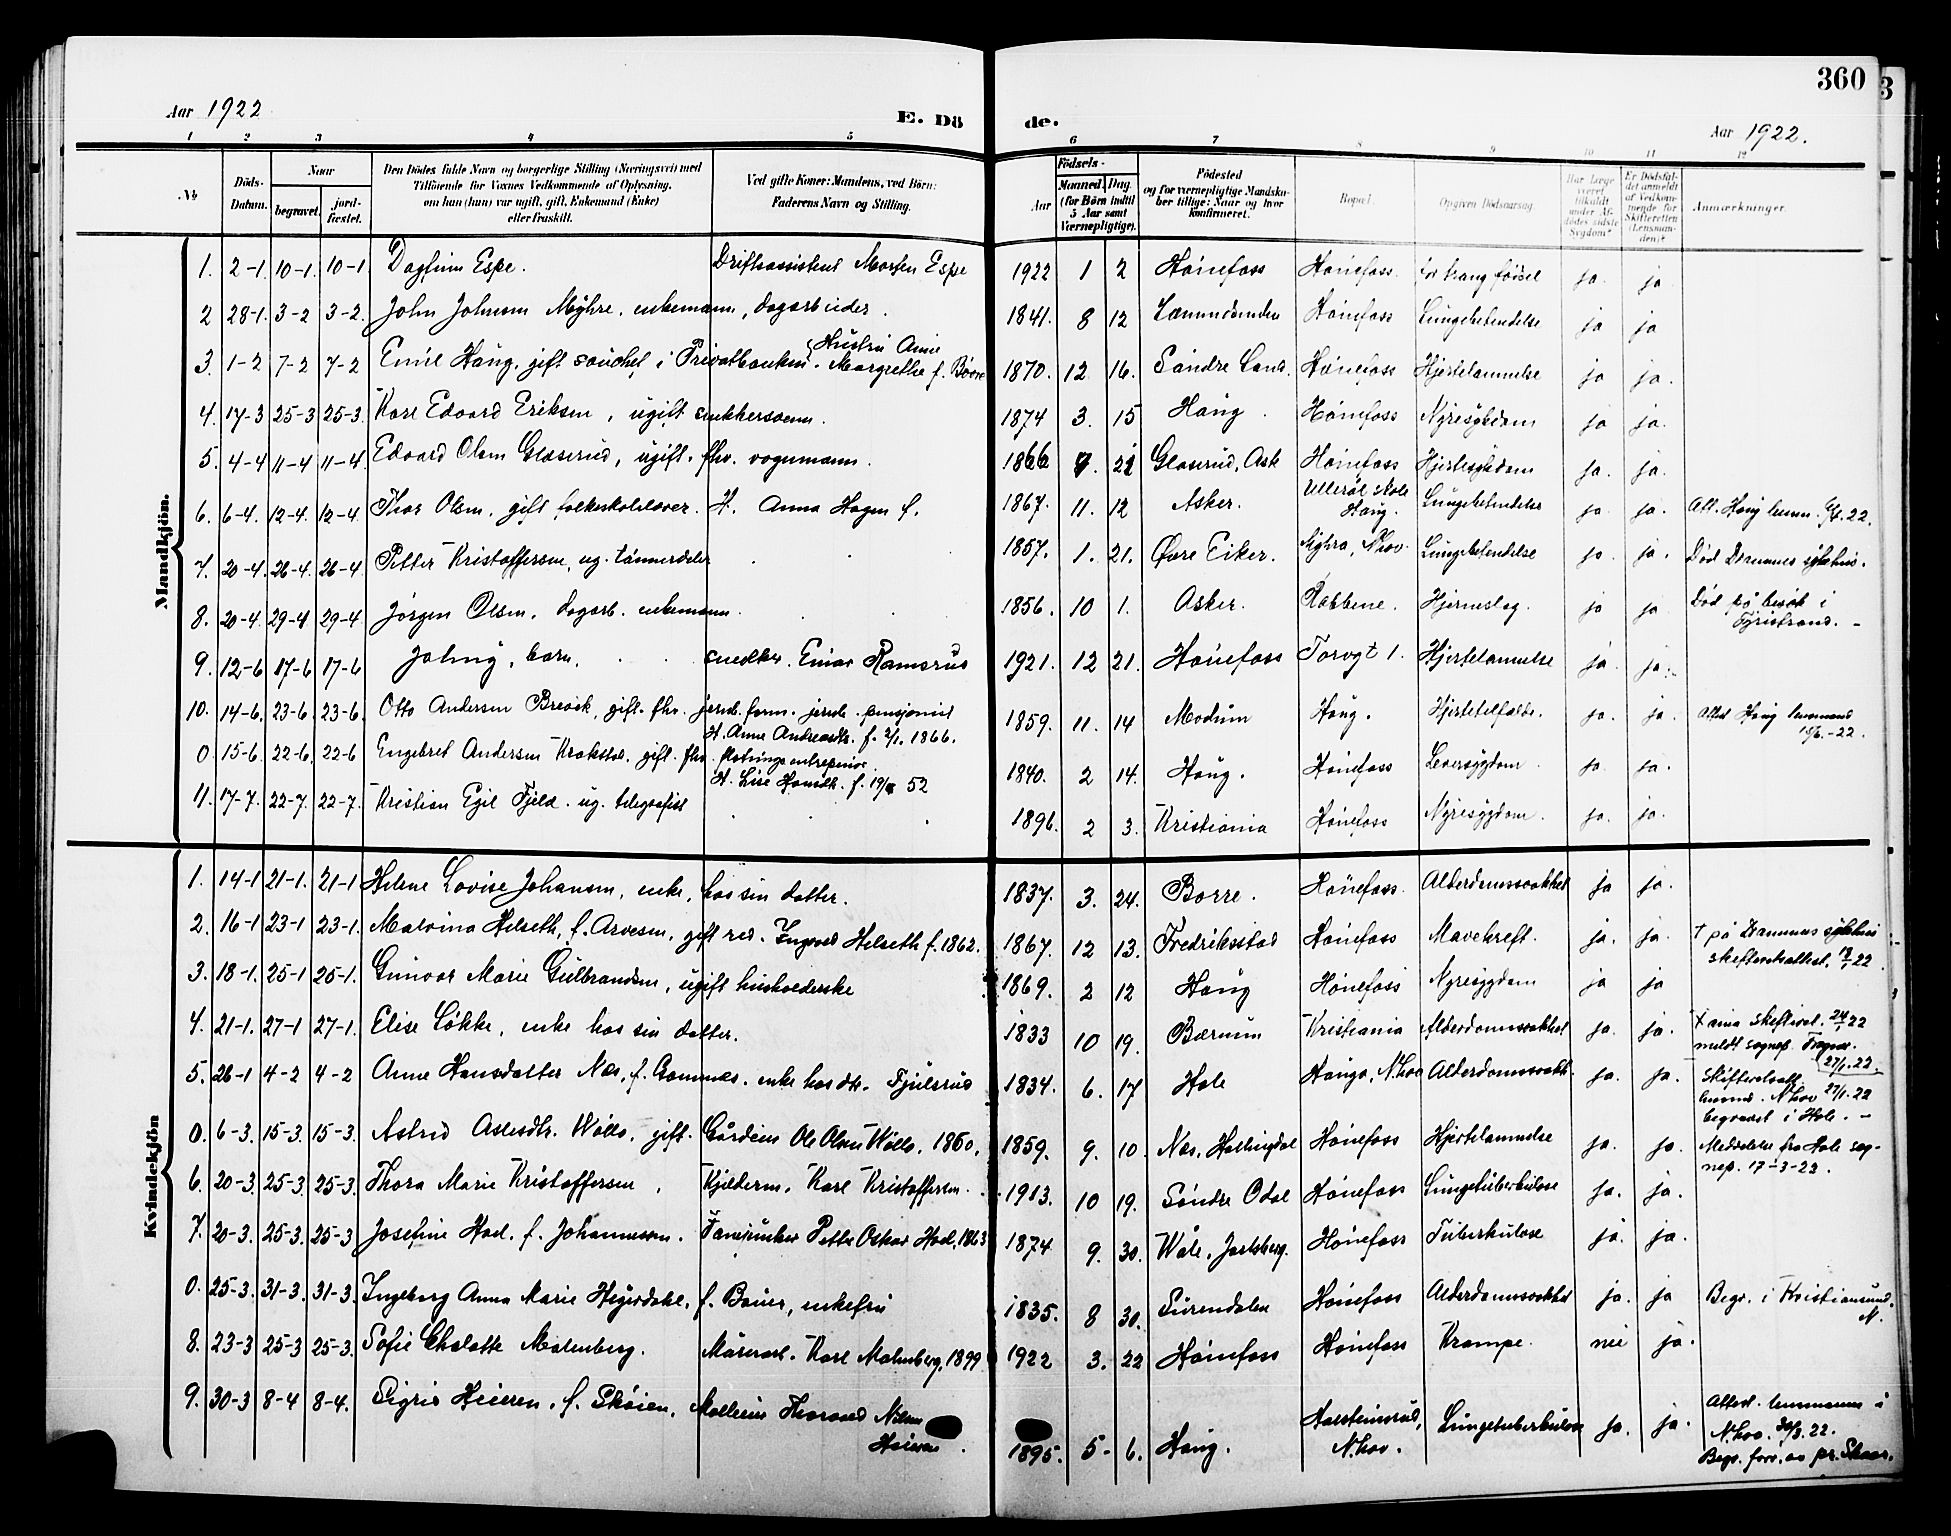 360
3
Aar 1922
E. Dö
de.
Aar 1922.
1 2 3 4 5 6 7 8 9 10 11 12
No
Döds-Datum.
Naar
begravet.
jord-fæstet.
Den Dödes fulde Navn og borgerlige Stilling (Næringsvei) med
Tilföiende for Voxnes Vedkommende af Oplysning,
om han (hun) var ugift, gift, Enkemand (Enke)
eller fraskilt.
Ved gifte Koner: Mandens, ved Börn:
Faderens Navn og Stilling.
Födsels-
Aar
Maaned. Dag.
(for Börn indtil
5 Aar samt
Værnepligtige).
Födested
og for værnepligtige Mandska-
ber tillige: Naar og hvor
konfirmeret.
Bopæl.
Opgiven Dödsaarsag.
Har Læge
været
tilkaldt
under Af-
dödes sidste
Sygdom?
Er Dödsfal-
det anmeldt
af Vedkom-
mende for
Skifteretten
(Lensman-
den)?
Anmærkninger.
Mandkjön.
1. 2-1 10-1. 10-1 Dagfinn Espe. Driftsassistent Morten Espe 1922 1 2 Hönefoss Hönefoss. for trang födsel ja. ja
2 28-1. 3-2 3-2. John Johnsen Myhre. enkemann, dagarbeider. 1841. 8 12 Hönefoss Lungebetendelse ja ja
3. 1-2 7-2 7-2 Emil Haug, gift i Privatbanken. Hustru Anne
Margrethe f. 1870. 12 16. Söndre Land. Hönefoss Hjertelammelse ja ja.
4. 17-3 25-3 25-3. Karl Edvard Eriksen, ugift snekkersvenn. 1874 3. 15 Haug. Hönefoss Nyresykdom ja ja.
5. 4-4 11-4 11-4 Edvard Olsen Glæserud, ugift. fhv. vognmann. 1866 9. 21 Glæserud, Ask Hönefoss Hjertesykdom ja. ja.
6. 6-4. 12-4. 12-4 Thor Olsen, gift folkeskolelærer. H. Anna Hagen f. 1867. 11. 12 Asker. Ullerål skole
Haug. Lungebetendelse ja. ja. Att. Haug lensm. 22.
7. 20-4. 26-4. 26-4 Petter Kristoffersen, ug. tömmerdeler 1857. 1. 21. Övre Eiker. Myhra, N.hov. Lungebetendelse ja. ja. Död Drammens sykehus.
8. 20-4. 29-4 29-4 Jörgen Olsen. dagarb. enkemann. 1856. 10 1. Asker. Rabbene. Hjerneslag. ja ja Död på besök i
Tyristrand. -
9. 12-6 17-6 17-6 Johny, barn. snedker. Einar Ramsrud 1921. 12 21. Hönefoss Torvgt 1. Hjertelammelse ja. ja.
10. 14-6. 23-6 23-6. Otto Andersen Brevik, gift. fhv. jernb. form. jernb. pensjonist
H. Anne Andreasdtr. f. 2/1. 1866. 1859. 11. 14 Modum Haug. Hjertetilfælde. ja. ja. Attest Haug lensmand
-22.
0. 15-6 22-6. 22-6 Engebret Andersen Krakstad. gift. fhv. flötningsentreprenör
H. Lise Hansdtr. f. 52 1840. 2 14. Haug. Hönefoss Leversygdom ja. ja.
11. 17-7. 22-7. 22-7. Kristian Egil Fjeld. ug. telegrafist 1896. 2 3. Kristiania Hönefoss Nyresygdom. ja. ja.
Kvindekjön
1. 14-1 21-1. 21-1 Helene Lovise Johansen, enke, hos sin datter. 1837. 3. 24. Borre. Hönefoss. Alderdomssvakhet ja ja.
2. 16-1 23-1 23-1. Malvina Helseth, f. Arvesen, gift red. Ingvald Helseth f. 1862. 1867. 12 13. Fredriksstad Hönefoss Mavekreft. ja. ja. † på Drammens sykehus
22
3. 18-1. 25-1 25-1. Gunvor Marie Gulbrandsen, ugift husholderske 1869. 2 12 Haug Hönefoss Nyresygdom ja ja
4. 21-1. 27-1 27-1. Elise Lökke, enke hos sin datter. 1833 10 19. Bærum Kristiania Alderdomssvakhet ja. ja. 24/1 22
meldt sognep.
27/1. 22.
5. 26-1 4-2 4-2 Anne Hansdatter Næs, f. enke hos dtr. Fjulsrud 1834. 6. 17 Hole Alderdomssvakh. ja. ja. Skifterelsatt.
lensmd. N.hov 27/1. 22
begravet i Hole. -
0. 6-3. 15-3. 15-3. Astrid Aslesdtr. Wöllo. gift. Gårdeier Ole Olsen Wöllo. 1860. 1859. 9. 10. Næs, Hallingdal Hönefoss Hjertelammelse ja. ja. Meddelelse fra Hole sog-
nep. 17-3-22.
6. 20-3. 25-3. 25-3. Thora Marie Kristoffersen, Kjelderm. Karl Kristoffersen. 1913. 10 19. Söndre Odal Hönefoss Lungetuberkulose ja. ja.
7. 20-3. 25-3. 25-3 Josefine Hoel. f. Johannessen. Fanejunker Petter Oskar Hoel, 1863 1874 9. 30. Wåle, Jarlsberg. Hönefoss Tuberkulose ja. ja.
0. 25-3. 31-3. 31-3. Ingeborg Anna Marie Heyerdahl, f. Bauer, enkefru 1835. 8 30. Surendalen Hönefoss Alderdomssvakhet ja. ja Begr. i Kristiansund.
N.
8. 23-3 25-3 25-3. Sofie Chalotte Malmberg. Murerarb. Karl Malmberg, 1899 1922 3. 22 Hönefoss Hönefoss Krampe. nei ja.
9. 30-3 8-4 8-4. Sigrid Heieren, f. Sköien, Thorvald Nilsen
Heieren. 1895. 5- 6. Haug. N.hov. Lungetuberkulose ja. ja. Attest. lensmannen i
N.hov. 30/3. 22.
Begr. forr. av pr. Skaar.